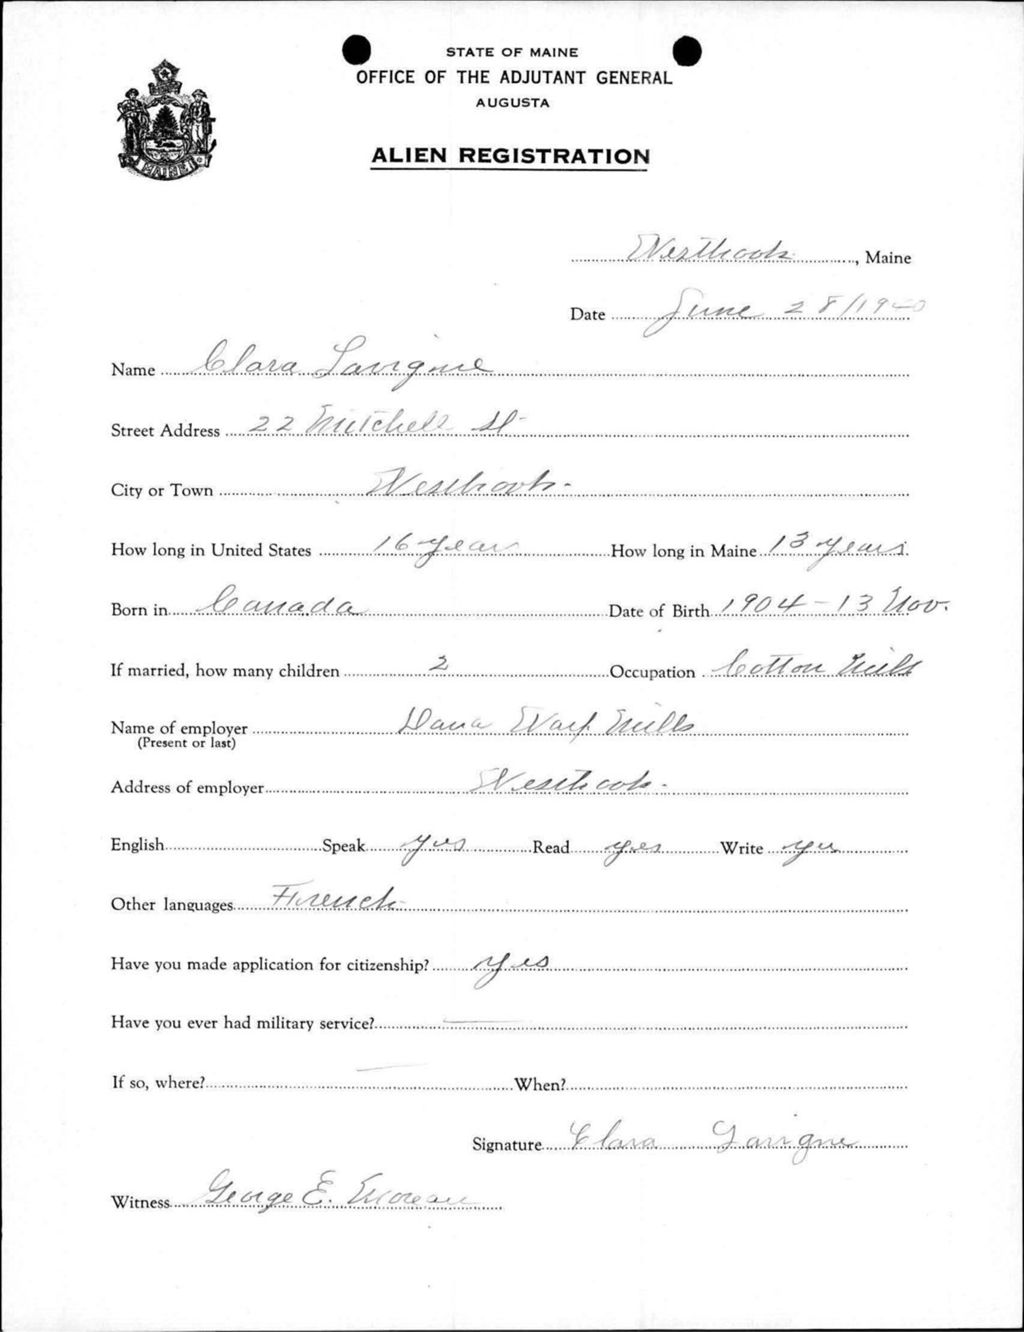 STATE OF MAINE
OFFICE OF THE ADJUTANT GENERAL
AUGUSTA
ALIEN REGISTRATION
MAINE
Westbrook, Maine
Date June 28/1940
Name Clara Lavigne
Street Address 22 Mitchell St
City or Town Westbrook-
How long in United States 16 year How long in Maine 13 years
Born in Canada Date of Birth 1904-13 Nov.
If married, how many children 2 Occupation Cotton Mill
Name of employer Dana Warp Mills
(Present or last)
Address of employer Westbrook-
English Speak yes Read yes Write yes
Other languages French
Have you made application for citizenship? yes
Have you ever had military service? —
If so, where? — When?
Signature Clara Lavigne
Witness George E. Moreau